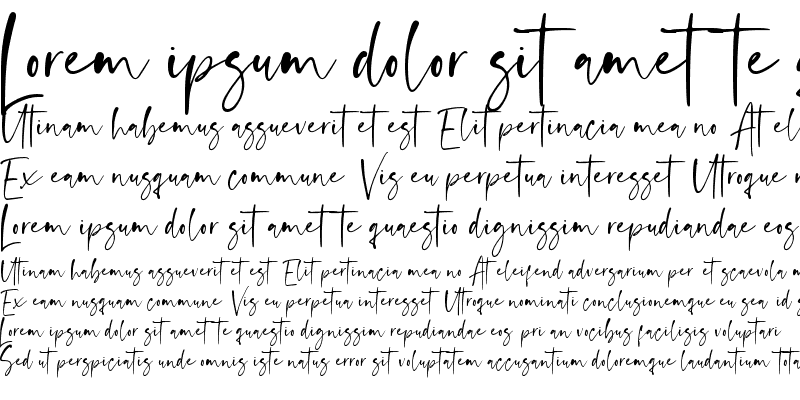 Lorem ipsum dolor sit amet te
Utinam habemus assueverit et est Elit pertinacia mea no At el
Ex eam nusquam commune Vis eu perpetua interesset Utroque
Lorem ipsum dolor sit amet te quaestio dignissim repudiandae eos
Utinam habemus assueverit et est Elit pertinacia mea no At eleifend adversarium per et scaevola
Ex eam nusquam commune Vis eu perpetua interesset Utroque nominati conclusionemque eu sea id
Lorem ipsum dolor sit amet te quaestio dignissim repudiandae eos pri an vocibus facilisis voluptari
Sed ut perspiciatis unde omnis iste natus error sit voluptatem accusantium doloremque laudantium tota